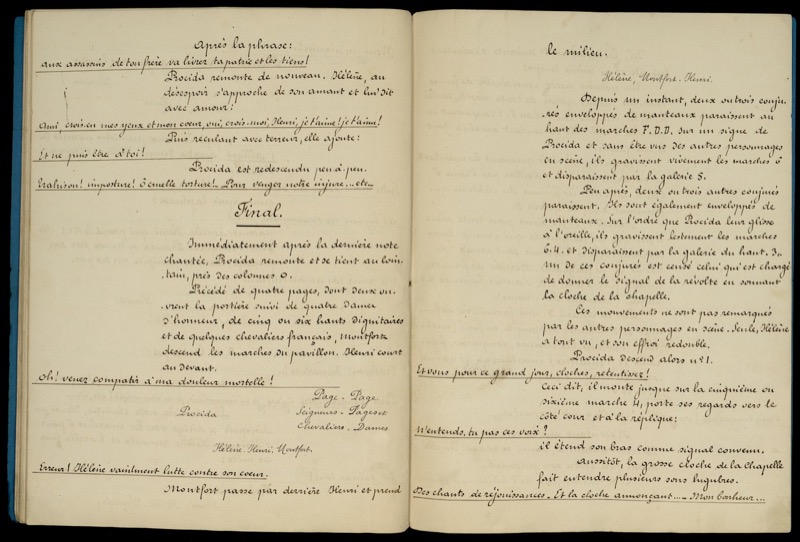 Après la phrase:
aux assassins de ton frère va livrer ta patrie et les tiens!
Procida remonte de nouveau. Hélène, au
désespoir s'approche de son amant et lui dit
avec amour:
Ami crois-en mes yeux et mon cœur, oui, crois-moi, Henri, je t'aime! je t'aime!
Puis reculant avec terreur, elle ajoute:
Et ne puis être à toi!
Procida est redescendu peu à peu.
Trahison! imposture! O cruelle torture!.. Pour venger notre injure... etc...
Final.
Immédiatement après la dernière note
chantée, Procida remonte et se tient au loin-
tain, près des colonnes O.
Précédé de quatre pages, dont deux ou-
vrent la portière suivi de quatre Dames
d'honneur, de cinq ou six hauts dignitaires
et de quelques chevaliers français, Montfort
descend les marches du pavillon. Henri court
au devant.
Oh! venez compatir à ma douleur mortelle!
Page - Page
Procida Seigneurs - Pages et
Chevaliers - Dames
Hélène. Henri. Montfort.
Erreur! Hélène vainement lutte contre son cœur.
Montfort passe par derrière Henri et prend
le milieu.
Hélène, Montfort. Henri.
Depuis un instant, deux ou trois conju-
rés enveloppés de manteaux paraissent au
haut des marches F. D. D. Sur un signe de
Procida et sans être vus des autres personnages
en scène, ils gravissent vivement les marches 6
et disparaissent par la galerie 5.
Peu après, deux ou trois autres conjurés
paraissent. Ils sont également enveloppés de
manteaux. Sur l'ordre que Procida leur glisse
à l'oreille, ils gravissent lestement les marches
6.4. et disparaissent par la galerie du haut. 3.
Un de ces conjurés est censé celui qui est chargé
de donner le signal de la révolte en sonnant
la cloche de la chapelle.
Ces mouvements ne sont pas remarqués
par les autres personnages en scène. Seule, Hélène
a tout vu, et son effroi redouble.
Procida descend alors n° 1.
Et vous pour ce grand jour, cloches, retentissez!
Ceci dit, il monte jusque sur la cinquième ou
sixième marche 4, porte ses regards vers le
côté cour et à la réplique:
N'entends-tu pas ces voix?
il étend son bras comme signal convenu.
Aussitôt, la grosse cloche de la Chapelle
fait entendre plusieurs sons lugubres.
Des chants de réjouissances. Et la cloche annonçant.... Mon bonheur...